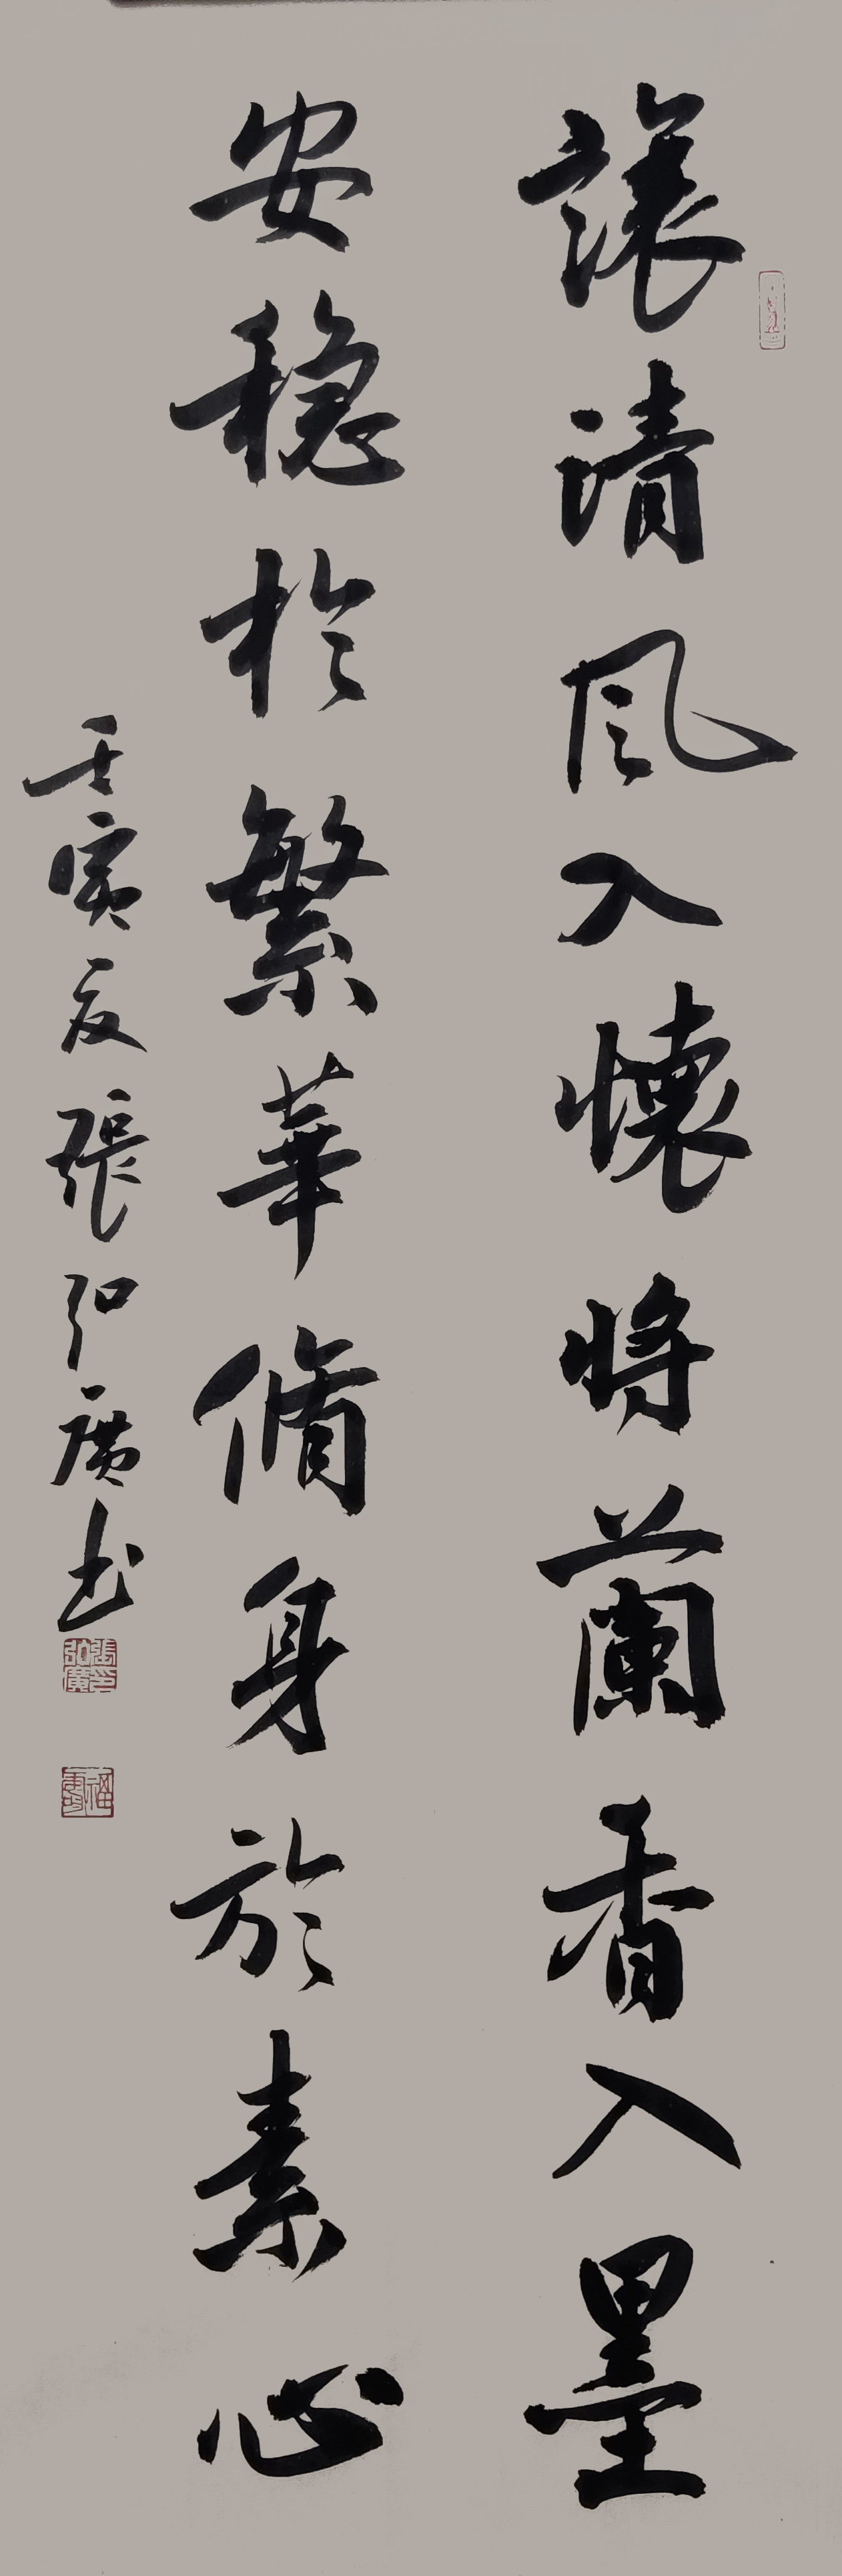 讓清風入懷將蘭香入墨
安穩於繁華脩身於素心
壬寅夏張弘廣书
張弘廣印